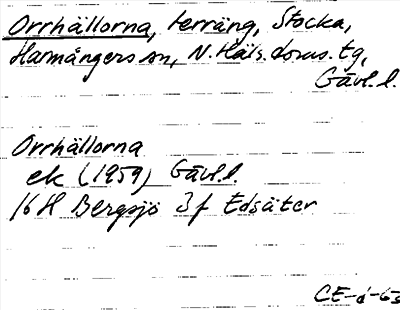 Orrhällorna, terräng, Stocka,
Harmångers sn, N. Häls. doms. tg,
Gävl.l.
Orrhällorna
ek (1959) Gävl.l.
16 H Bergsjö 3 f Edsäter
CE-d-63